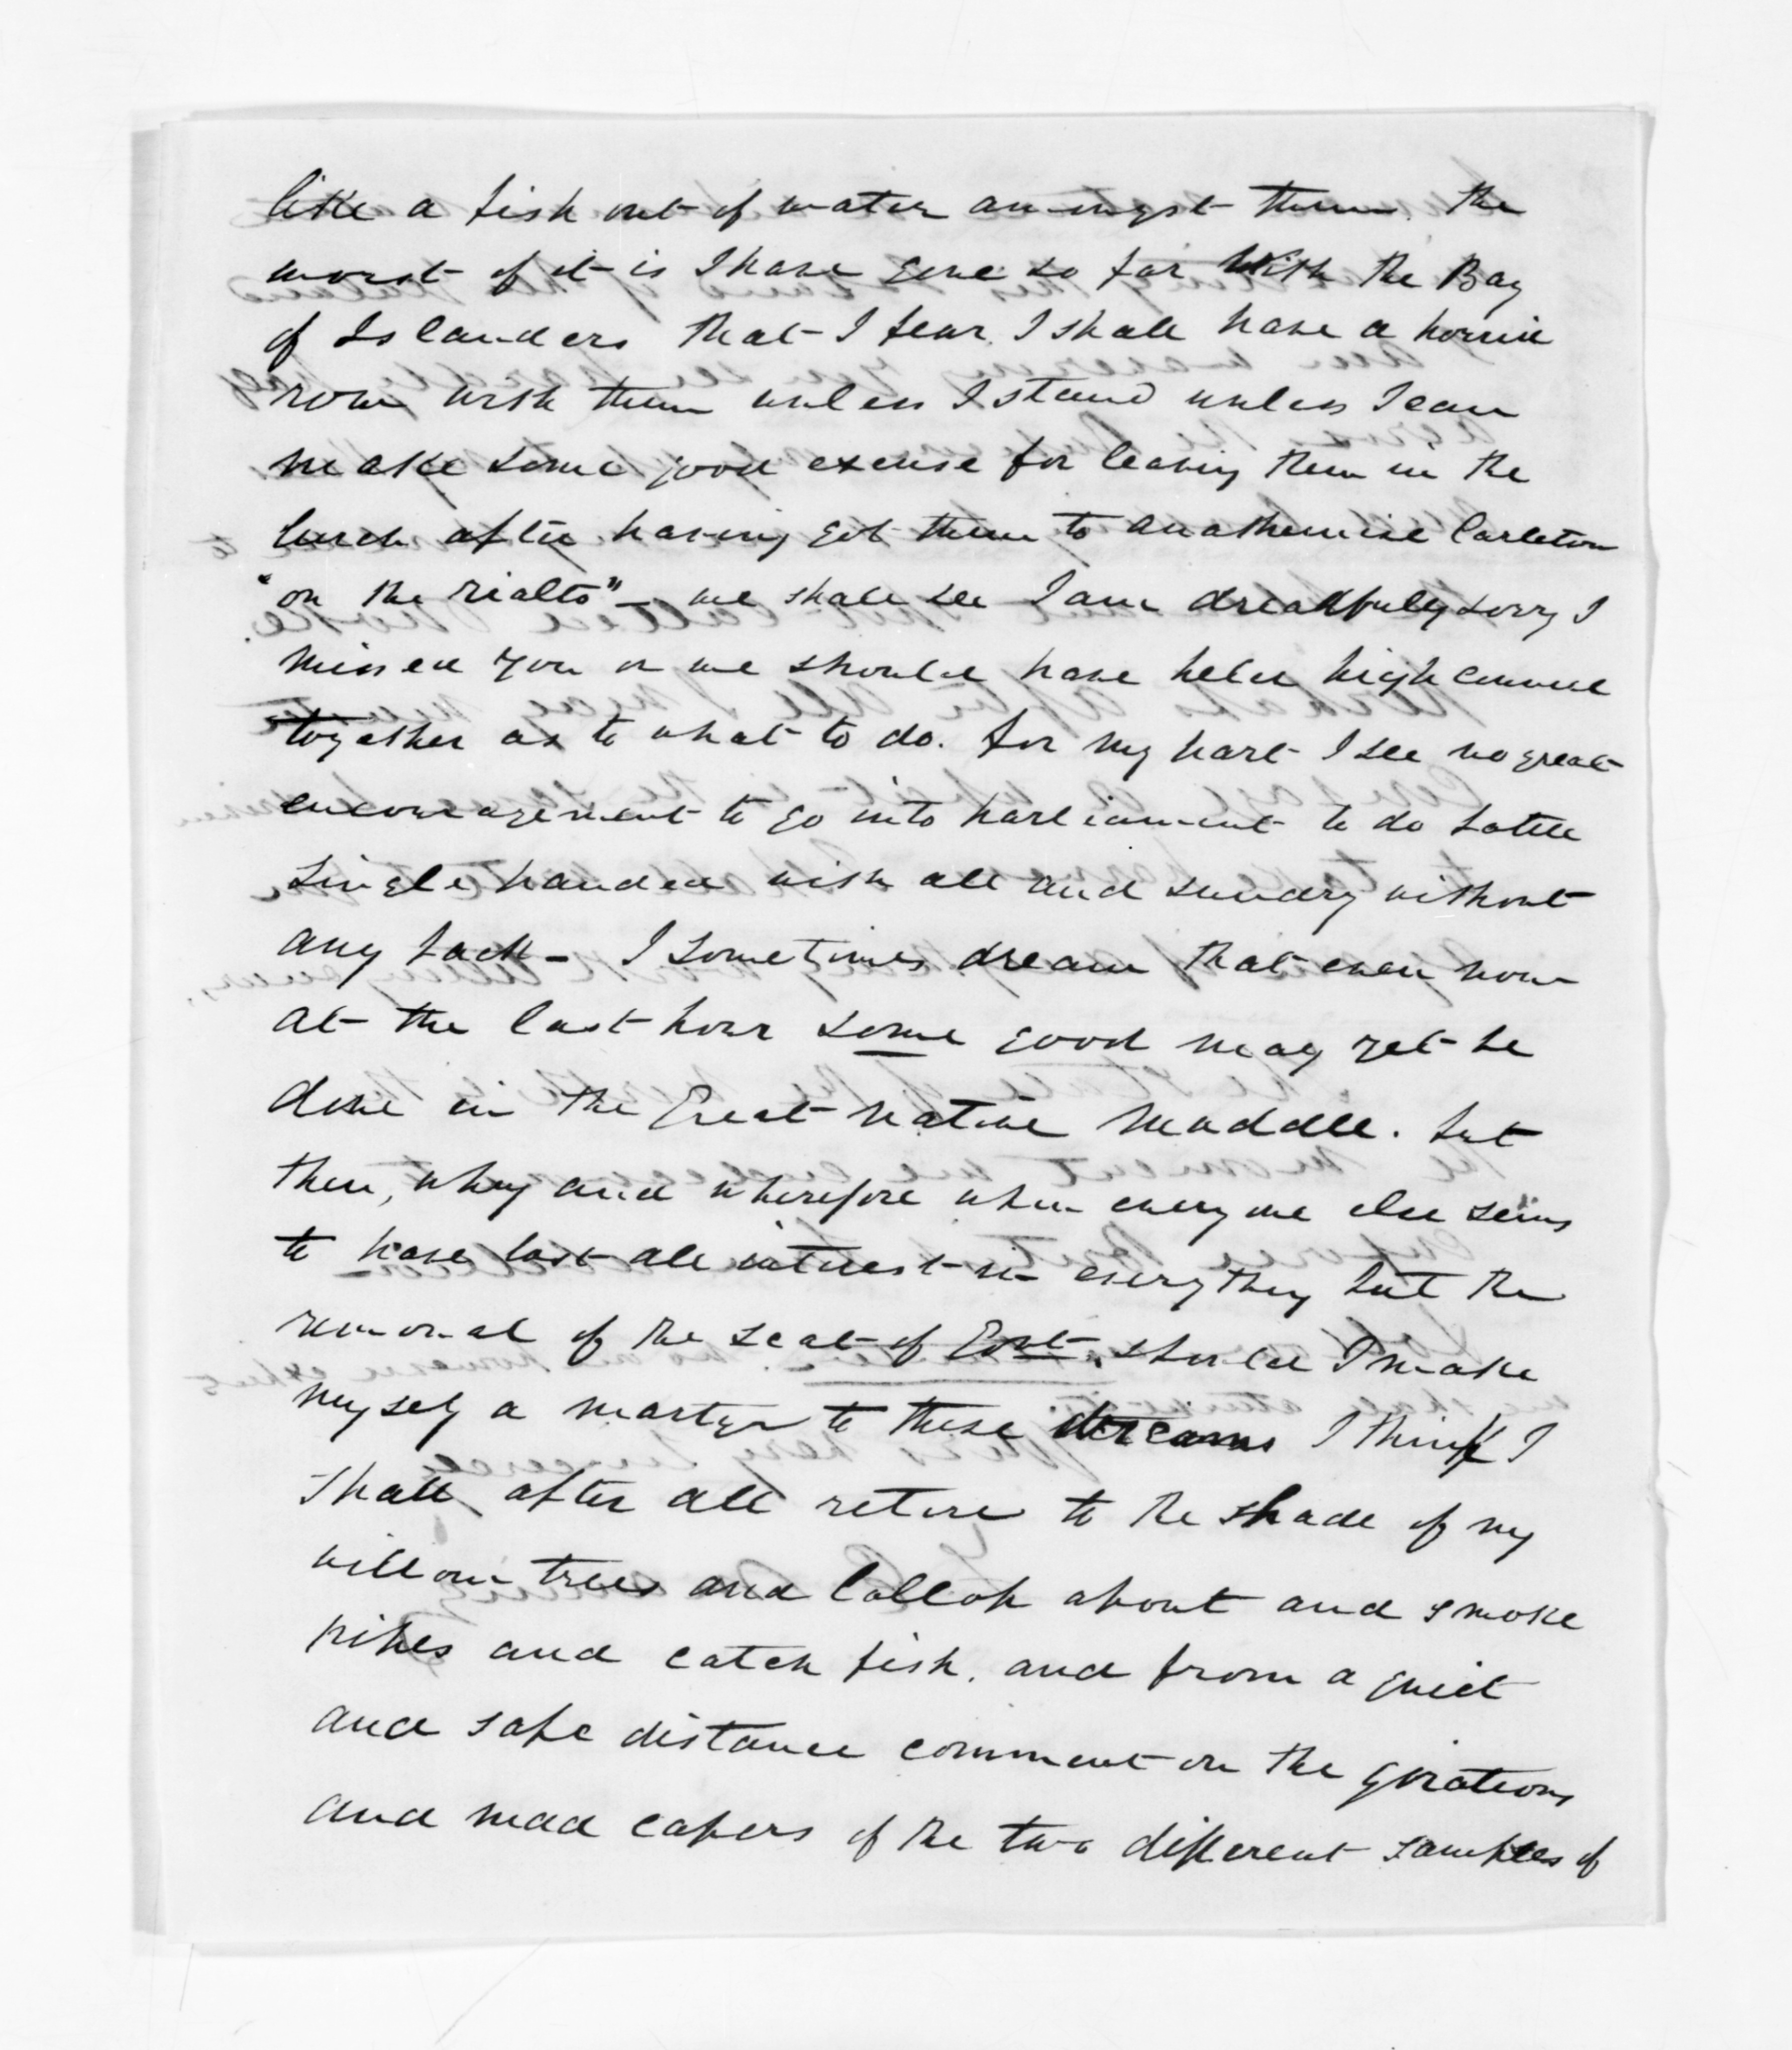 like a fish out of water amongst them. The
worst of it is I have gone so far with the Bay
of Islanders that I fear I shall have a horrid
row with them unless I stand unless I can
make some good excuse for leaving them in the
lurch after having got them to anathemise Carleton
"on the rialto" – we shall see I am dreadfully sorry I
missed you or we should have held high council
together as to what to do. for my part I see no great
encouragement to go into parliament to do battle
single handed with all and sundry without
any back – I sometimes dream that even now
at the last hour some good may yet be
done in the Great native muddle. but
then, why and wherefore when every one else seems
to have lost all interest in everything but the
removal of the seat of Govt. should I make
myself a martyr to these dreams I think I
shall after all retire to the shade of my
willow trees and lollop about and smoke
pipes and catch fish. and from a quiet
and safe distance comment on the girations
and mad capers of the two different samples of